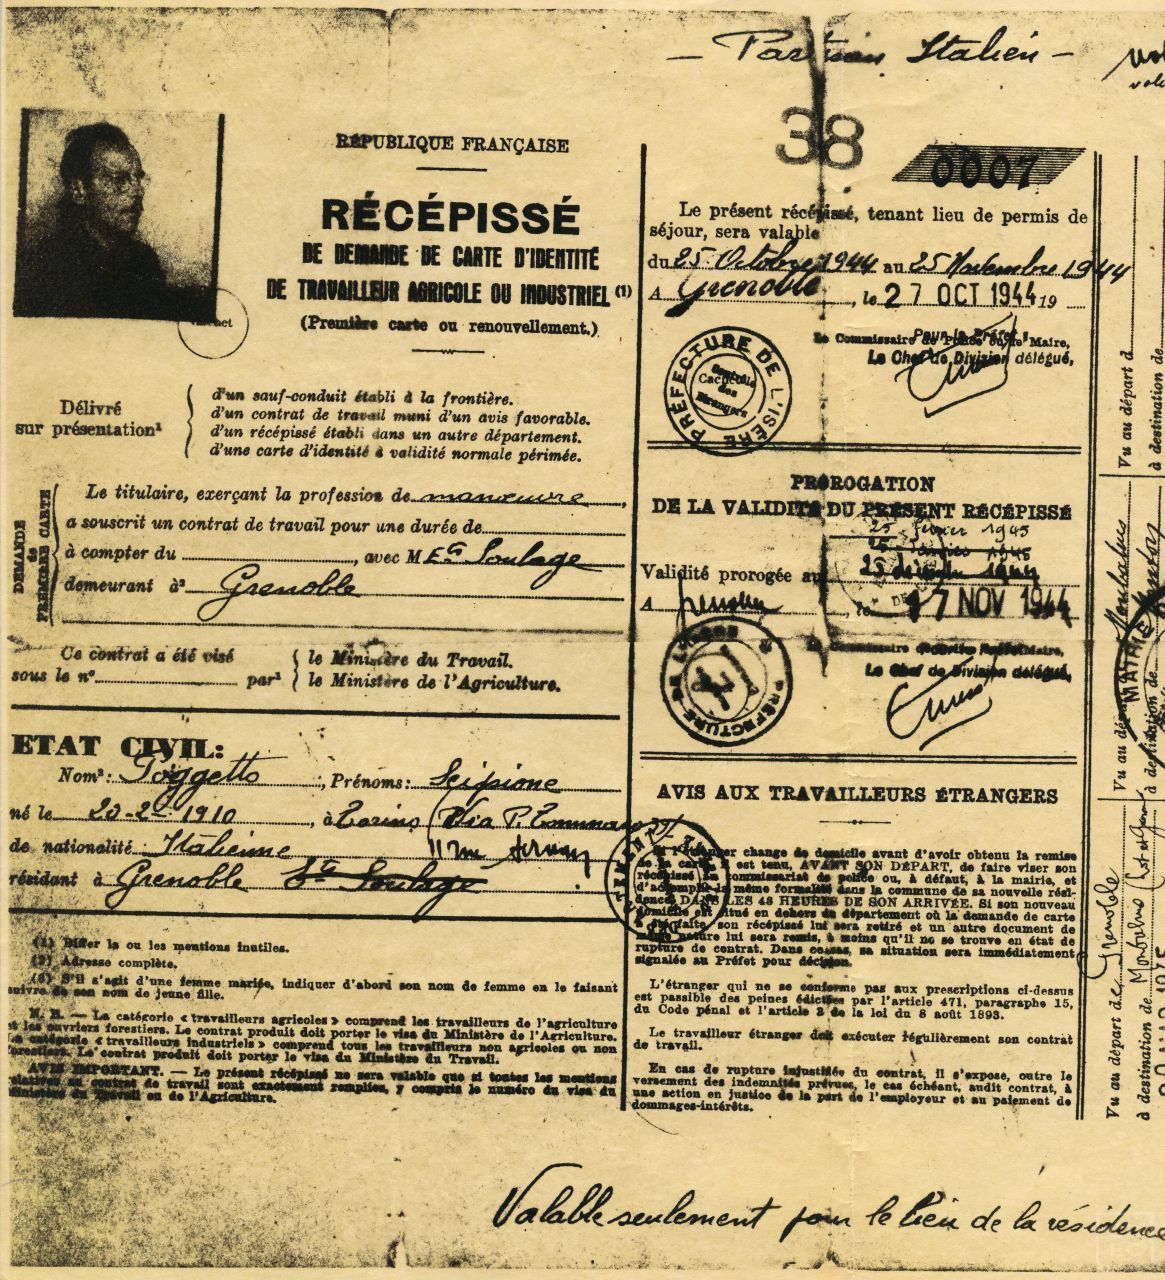 — Partisan Italien —
38
0007
RÉPUBLIQUE FRANÇAISE
RÉCÉPISSÉ
DE DEMANDE DE CARTE D'IDENTITÉ
DE TRAVAILLEUR AGRICOLE OU INDUSTRIEL (1)
(Première carte ou renouvellement.)
Délivré
sur présentation¹
d'un sauf-conduit établi à la frontière.
d'un contrat de travail muni d'un avis favorable.
d'un récépissé établi dans un autre département.
d'une carte d'identité à validité normale périmée.
DEMANDE
de
PREMIÈRE CARTE
Le titulaire, exerçant la profession de manœuvre,
a souscrit un contrat de travail pour une durée de
à compter du , avec M Eᵍ Soulage
demeurant à² Grenoble
Ce contrat a été visé
sous le n° par¹
le Ministère du Travail.
le Ministère de l'Agriculture.
ETAT CIVIL:
Nom³: Goggetto, Prénoms: Scipione
né le 20-2-1910, à Torino (Via P. Tommaso
de nationalité Italienne
résidant à Grenoble Sᵗᵉ Soulage
(1) Biffer la ou les mentions inutiles.
(2) Adresse complète.
(3) S'il s'agit d'une femme mariée, indiquer d'abord son nom de femme en le faisant
suivre de son nom de jeune fille.
N. B. — La catégorie « travailleurs agricoles » comprend les travailleurs de l'agriculture
et les ouvriers forestiers. Le contrat produit doit porter le visa du Ministère de l'Agriculture.
La catégorie « travailleurs industriels » comprend tous les travailleurs non agricoles ou non
forestiers. Le contrat produit doit porter le visa du Ministère du Travail.
AVIS IMPORTANT. — Le présent récépissé ne sera valable que si toutes les mentions
relatives au contrat de travail sont exactement remplies, y compris le numéro du visa du
Ministère du Travail ou de l'Agriculture.
Le présent récépissé, tenant lieu de permis de
séjour, sera valable
du 25 Octobre 1944 au 25 Novembre 1944
A Grenoble, le 27 OCT 1944 19
Le Commissaire de Police ou le Maire,
Pour le Préfet:
Le Chef de Division délégué,
PRÉFECTURE DE L'ISÈRE
Contrôle
des
Etrangers
PROROGATION
DE LA VALIDITÉ DU PRÉSENT RÉCÉPISSÉ
25 février 1945
25 Janvier 1945
Validité prorogée au 25 décembre 1944
A Grenoble, le 17 NOV 1944
Le Chef de Division délégué,
PRÉFECTURE DE L'ISÈRE
AVIS AUX TRAVAILLEURS ÉTRANGERS
Si l'étranger change de domicile avant d'avoir obtenu la remise
de la carte, il est tenu, AVANT SON DÉPART, de faire viser son
récépissé au commissariat de police ou, à défaut, à la mairie, et
d'accomplir la même formalité dans la commune de sa nouvelle rési-
dence, DANS LES 48 HEURES DE SON ARRIVÉE. Si son nouveau
domicile est situé en dehors du département où la demande de carte
a été faite, son récépissé lui sera retiré et un autre document de
même nature lui sera remis, à moins qu'il ne se trouve en état de
rupture de contrat. Dans ce cas, sa situation sera immédiatement
signalée au Préfet pour décision.
L'étranger qui ne se conforme pas aux prescriptions ci-dessus
est passible des peines édictées par l'article 471, paragraphe 15,
du Code pénal et l'article 3 de la loi du 8 août 1893.
Le travailleur étranger doit exécuter régulièrement son contrat
de travail.
En cas de rupture injustifiée du contrat, il s'expose, outre le
versement des indemnités prévues, le cas échéant, audit contrat, à
une action en justice de la part de l'employeur et au paiement de
dommages-intérêts.
Vu au départ d
à destination de
Vu au départ de Montauban
à destination de
MAIRIE
Vu au départ de Grenoble
à destination de Montauban
Valable seulement pour le lieu de la résidence